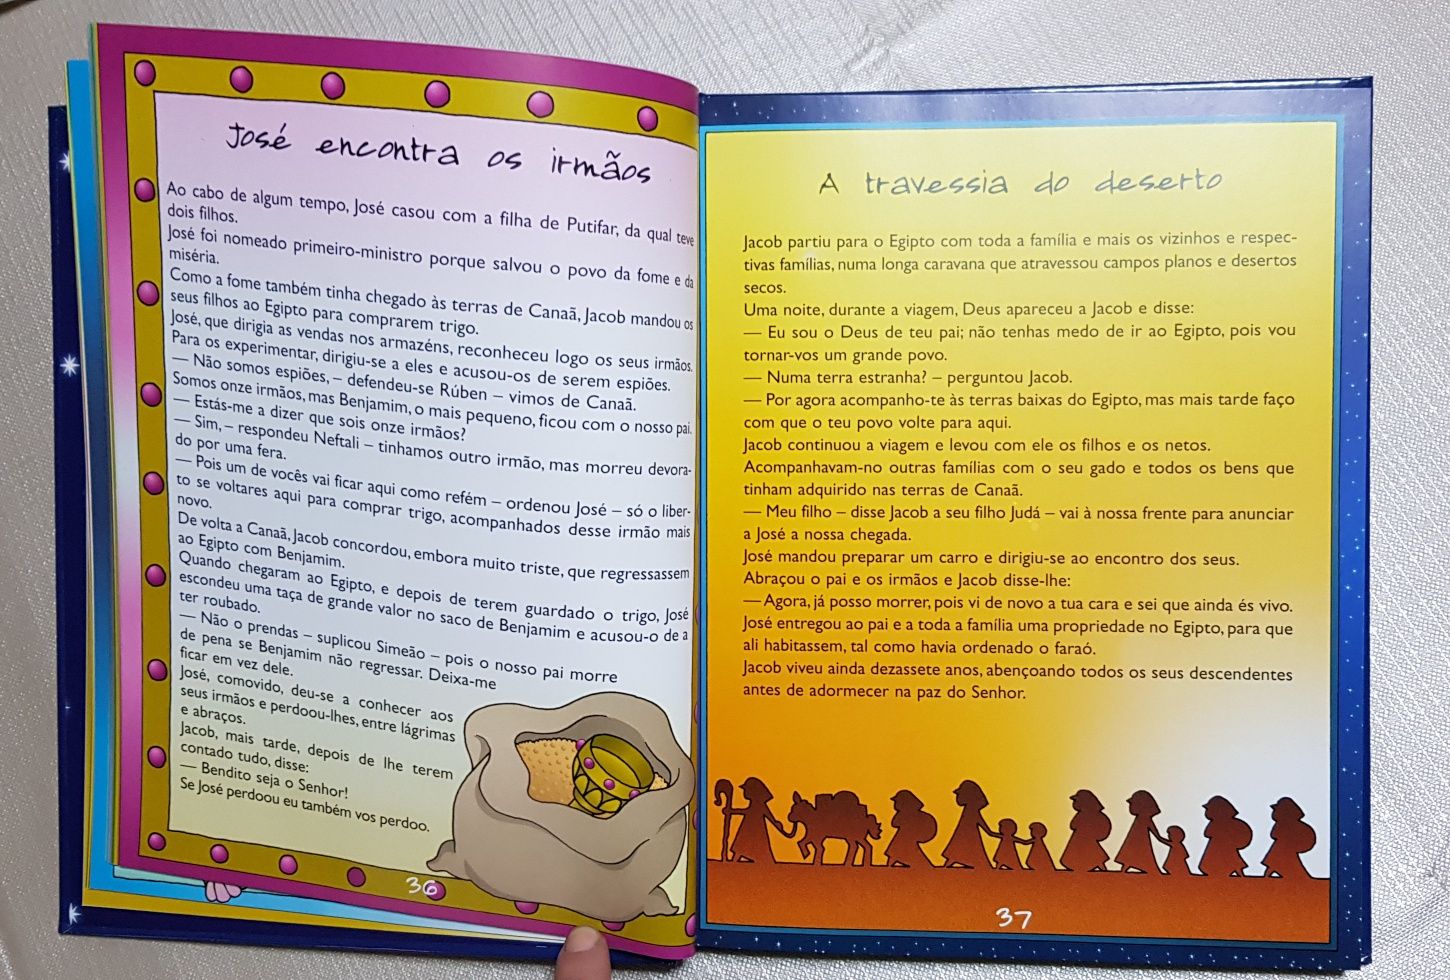 José encontra os irmãos
Ao cabo de algum tempo, José casou com a filha de Putifar, da qual teve
dois filhos.
José foi nomeado primeiro-ministro porque salvou o povo da fome e da
miséria.
Como a fome também tinha chegado às terras de Canaã, Jacob mandou os
seus filhos ao Egipto para comprarem trigo.
José, que dirigia as vendas nos armazéns, reconheceu logo os seus irmãos.
Para os experimentar, dirigiu-se a eles e acusou-os de serem espiões.
— Não somos espiões, – defendeu-se Rúben – vimos de Canaã.
Somos onze irmãos, mas Benjamim, o mais pequeno, ficou com o nosso pai.
— Estás-me a dizer que sois onze irmãos?
— Sim, – respondeu Neftali – tinhamos outro irmão, mas morreu devora-
do por uma fera.
— Pois um de vocês vai ficar aqui como refém – ordenou José – só o liber-
to se voltares aqui para comprar trigo, acompanhados desse irmão mais
novo.
De volta a Canaã, Jacob concordou, embora muito triste, que regressassem
ao Egipto com Benjamim.
Quando chegaram ao Egipto, e depois de terem guardado o trigo, José
escondeu uma taça de grande valor no saco de Benjamim e acusou-o de a
ter roubado.
— Não o prendas – suplicou Simeão – pois o nosso pai morre
de pena se Benjamim não regressar. Deixa-me
ficar em vez dele.
José, comovido, deu-se a conhecer aos
seus irmãos e perdoou-lhes, entre lágrimas
e abraços.
Jacob, mais tarde, depois de lhe terem
contado tudo, disse:
— Bendito seja o Senhor!
Se José perdoou eu também vos perdoo.
36
A travessia do deserto
Jacob partiu para o Egipto com toda a família e mais os vizinhos e respec-
tivas famílias, numa longa caravana que atravessou campos planos e desertos
secos.
Uma noite, durante a viagem, Deus apareceu a Jacob e disse:
— Eu sou o Deus de teu pai; não tenhas medo de ir ao Egipto, pois vou
tornar-vos um grande povo.
— Numa terra estranha? – perguntou Jacob.
— Por agora acompanho-te às terras baixas do Egipto, mas mais tarde faço
com que o teu povo volte para aqui.
Jacob continuou a viagem e levou com ele os filhos e os netos.
Acompanhavam-no outras famílias com o seu gado e todos os bens que
tinham adquirido nas terras de Canaã.
— Meu filho – disse Jacob a seu filho Judá – vai à nossa frente para anunciar
a José a nossa chegada.
José mandou preparar um carro e dirigiu-se ao encontro dos seus.
Abraçou o pai e os irmãos e Jacob disse-lhe:
— Agora, já posso morrer, pois vi de novo a tua cara e sei que ainda és vivo.
José entregou ao pai e a toda a família uma propriedade no Egipto, para que
ali habitassem, tal como havia ordenado o faraó.
Jacob viveu ainda dezassete anos, abençoando todos os seus descendentes
antes de adormecer na paz do Senhor.
37